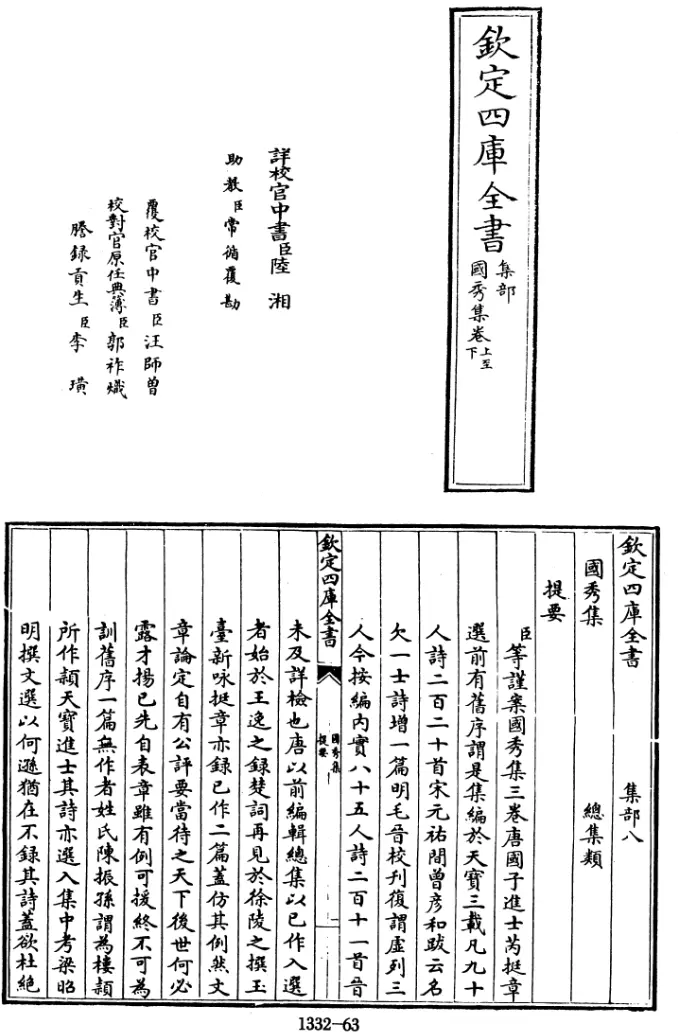 欽定四庫全書
集部
國秀集卷上至下
詳校官中書臣陸湘
助教臣常循覆勘
覆校官中書臣汪師曾
校對官原任典簿臣郭祚熾
謄録貢生臣李璜
欽定四庫全書 集部八
國秀集 總集類
提要
臣等謹案國秀集三卷唐國子進士芮挺章
選前有舊序謂是集編於天寶三載凡九十
人詩二百二十首宋元祐間曾彥和跋云名
欠一士詩增一篇明毛晉校刋復謂虛列三
人今按編内實八十五人詩二百十一首晉
欽定四庫全書
國秀集
提要
一
未及詳檢也唐以前編輯總集以已作入選
者始於王逸之録楚詞再見於徐陵之撰玉
臺新咏挺章亦録已作二篇蓋仿其例然文
章論定自有公評要當待之天下後世何必
露才揚已先自表章雖有例可援終不可為
訓舊序一篇無作者姓氏陳振孫謂為樓頴
所作頴天寶進士其詩亦選入集中考梁昭
明撰文選以何遜猶在不録其詩蓋欲杜絶
1332-63